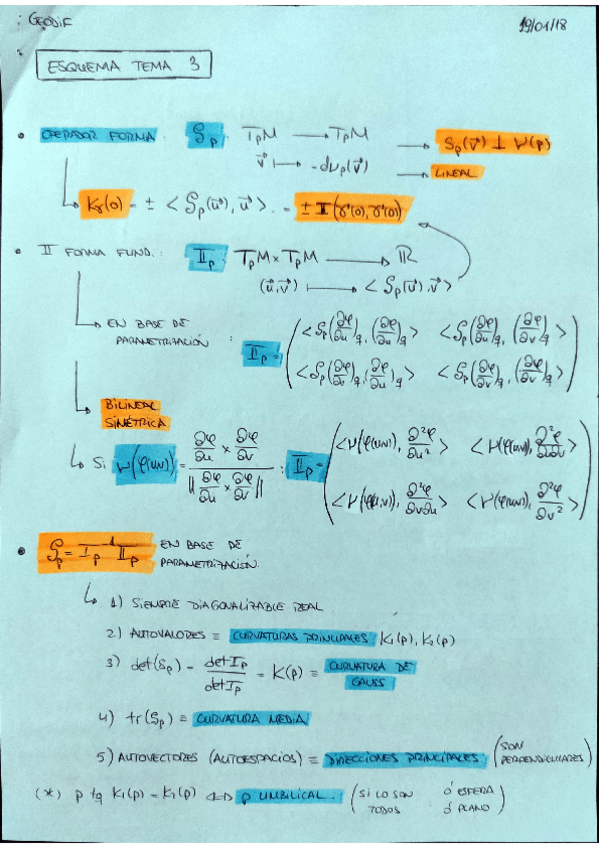 GEODIF
19/01/18
ESQUEMA TEMA 3
• OPERADOR FORMA: Sₚ: TₚM ⟶ TₚM
v⃗ ⟼ -dνₚ(v⃗)
→ Sₚ(v⃗) ⊥ ν(p)
→ LINEAL
↳ Kᵧ(0) = ± < Sₚ(u⃗), u⃗ > = ± II(γ'(0), γ'(0))
• II FORMA FUND.: IIₚ: TₚM × TₚM ⟶ ℝ
(u⃗, v⃗) ⟼ < Sₚ(u⃗), v⃗ >
→ EN BASE DE PARAMETRIZACIÓN:
IIₚ = ( < Sₚ(∂φ/∂u)q, (∂φ/∂u)q > < Sₚ(∂φ/∂u)q, (∂φ/∂v)q >
< Sₚ(∂φ/∂v)q, (∂φ/∂u)q > < Sₚ(∂φ/∂v)q, (∂φ/∂v)q > )
→ BILINEAL
SIMÉTRICA
↳ Si ν(φ(u,v)) = (∂φ/∂u × ∂φ/∂v) / ‖∂φ/∂u × ∂φ/∂v‖ :
IIₚ = ( < ν(φ(u,v)), ∂²φ/∂u² > < ν(φ(u,v)), ∂²φ/∂u∂v >
< ν(φ(u,v)), ∂²φ/∂v∂u > < ν(φ(u,v)), ∂²φ/∂v² > )
• Sₚ = Iₚ⁻¹ IIₚ EN BASE DE
PARAMETRIZACIÓN.
↳ 1) SIEMPRE DIAGONALIZABLE REAL
2) AUTOVALORES ≡ CURVATURAS PRINCIPALES K₁(p), K₂(p)
3) det(Sₚ) = det IIₚ / det Iₚ = K(p) ≡ CURVATURA DE
GAUSS
4) tr(Sₚ) ≡ CURVATURA MEDIA
5) AUTOVECTORES (AUTOESPACIOS) ≡ DIRECCIONES PRINCIPALES (SON
PERPENDICULARES)
(*) p tq K₁(p) = K₂(p) ⟺ p UMBILICAL. (SI LO SON TODOS : Ó ESFERA
Ó PLANO)